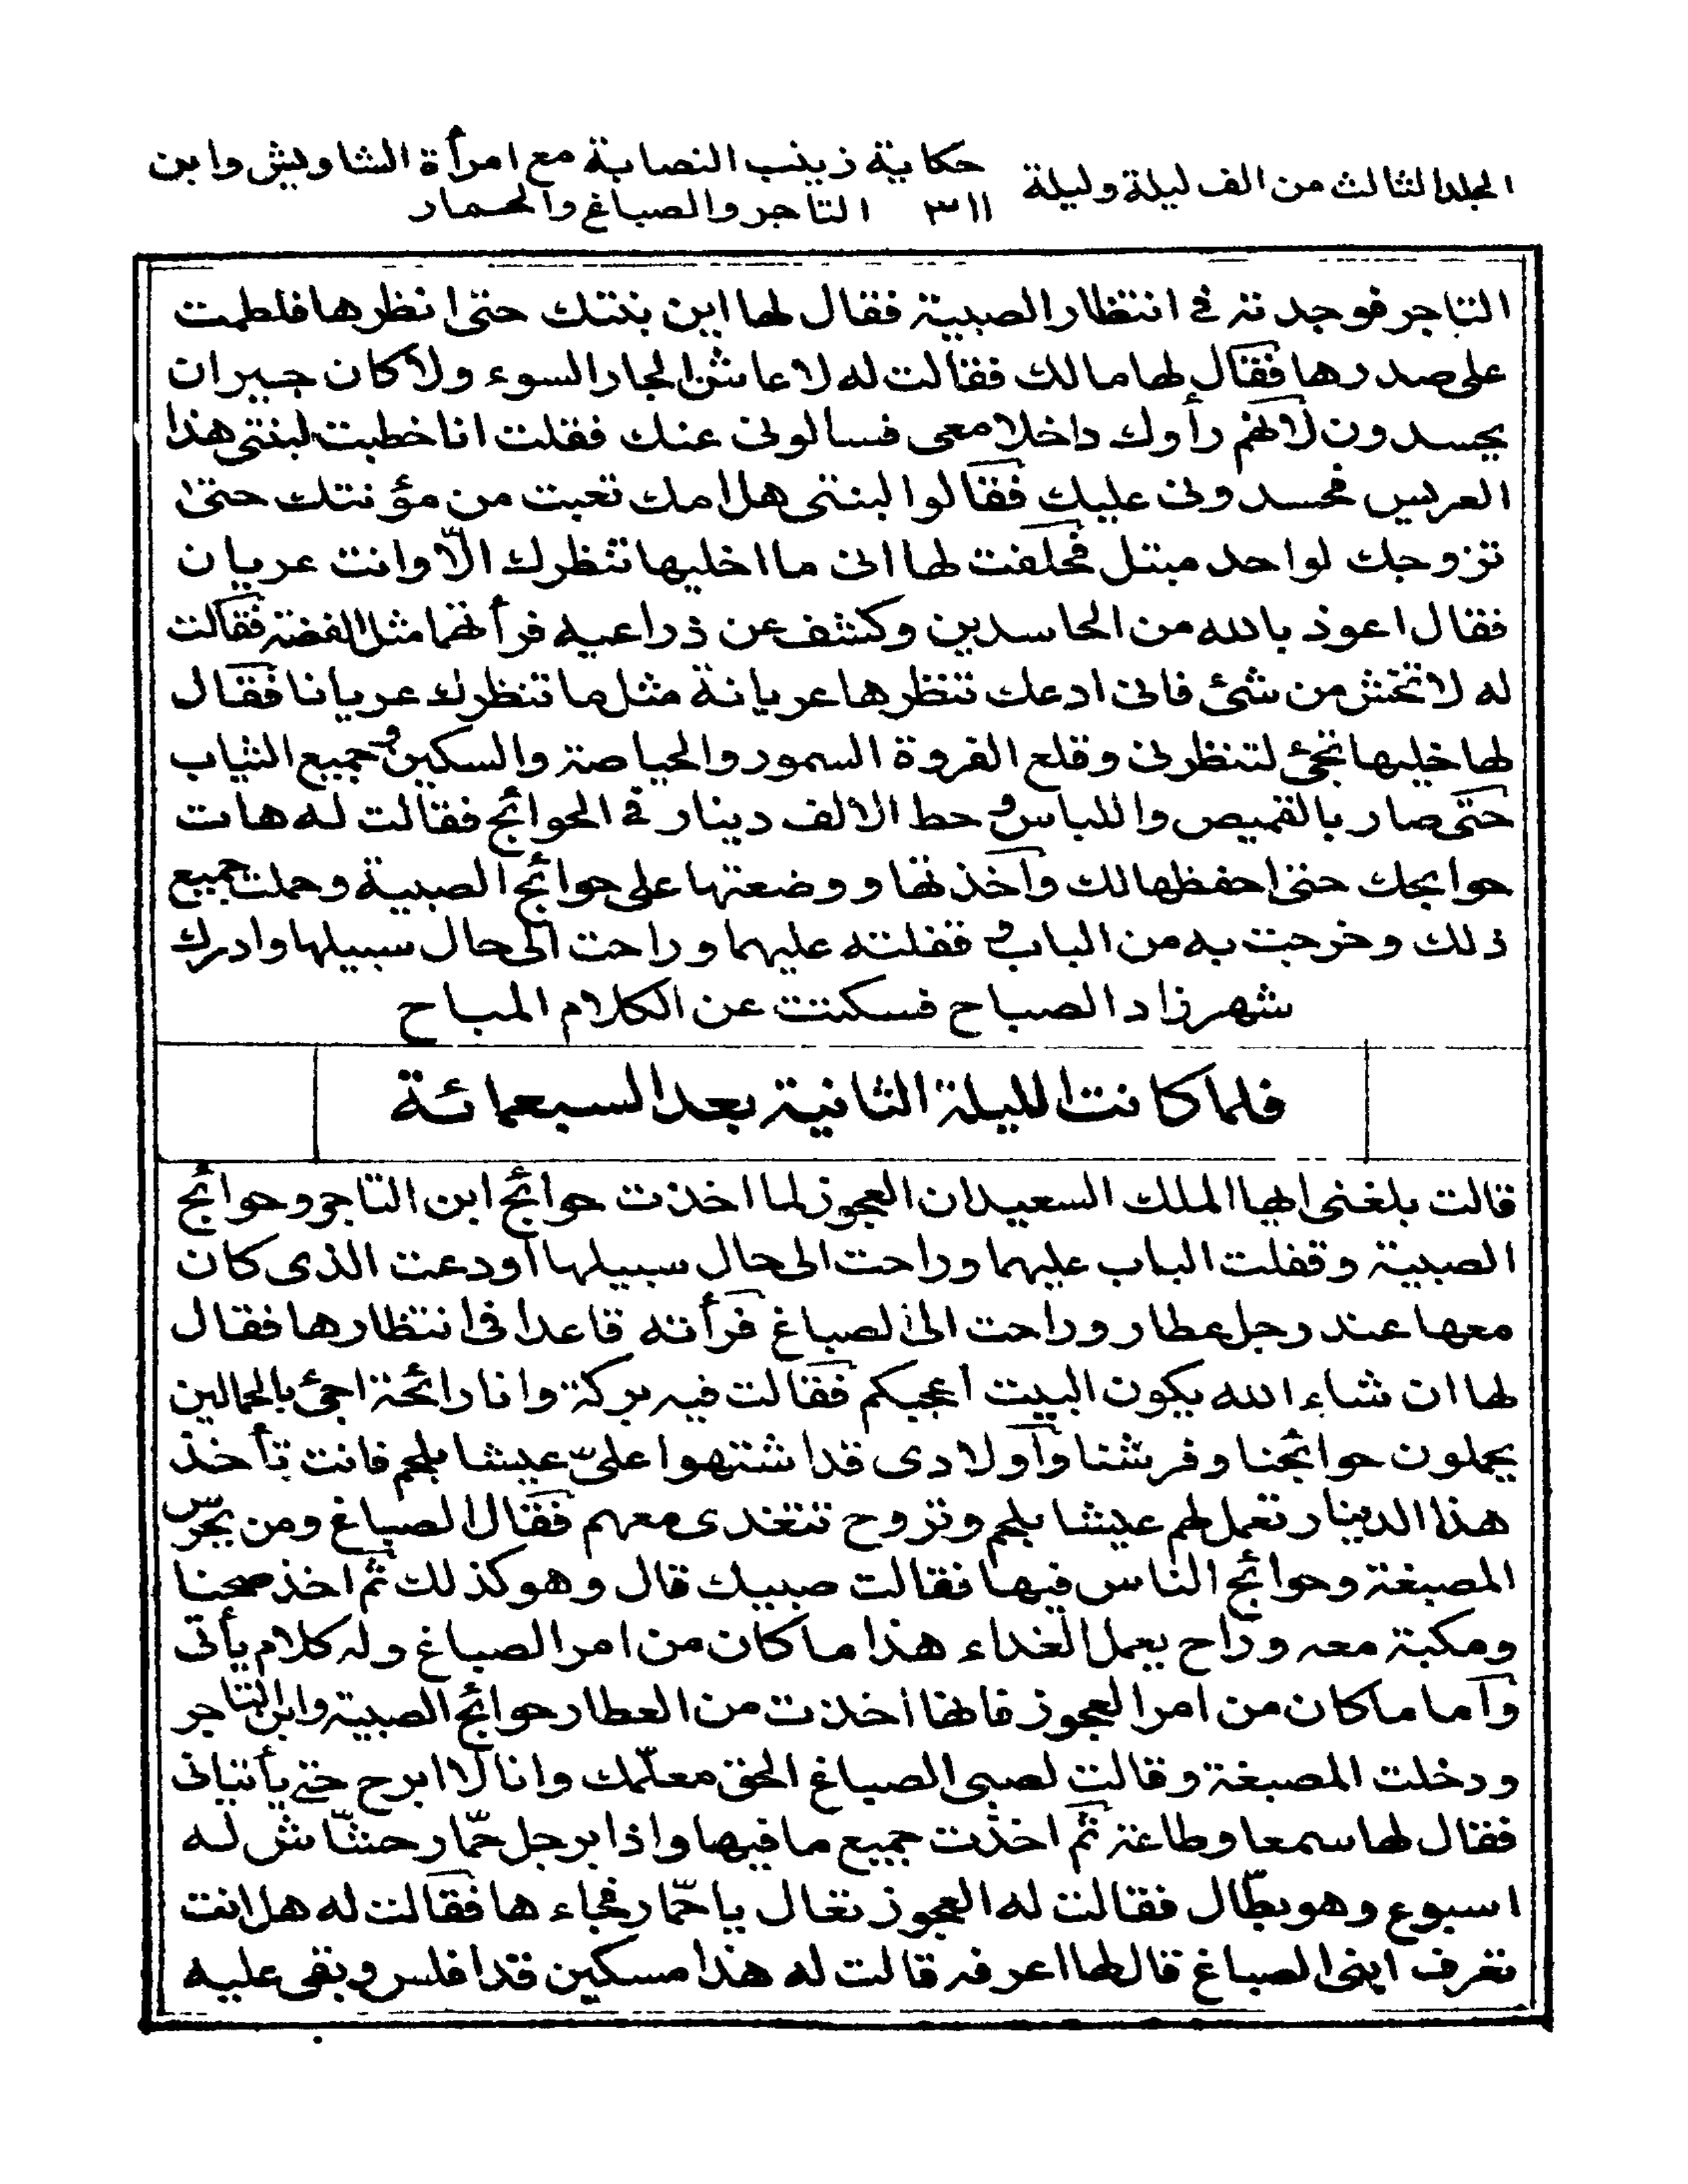 المجلد الثالث من الف ليلة وليلة
حكاية زينب النصابة مع امرأة الشاويش وابن
٣١١ التاجر والصباغ والحمار
التاجر فوجدته في انتظار الصبية فقال لها اين بنتك حتى انظرها فلطمت
على صدرها فقال لها مالك فقالت له لا عاش الجار السوء ولا كان جيران
يحسدون لانهم رأوك داخلا معى فسالونى عنك فقلت انا خطبت لبنتى هذا
العريس فحسدونى عليك فقالوا لبنتى هل امك تعبت من مؤنتك حتى
تزوجك لواحد مبتل فحلفت لها انى ما اخليها تنظرك الّا وانت عريان
فقال اعوذ بالله من الحاسدين وكشف عن ذراعيه فرأتهما مثل الفضة فقالت
له لا تخش من شئ فانى ادعك تنظرها عريانة مثل ما تنظرك عريانا فقال
لها خليها تجئ لتنظرنى وقلع الفروة السمور والحياصة والسكين وجميع الثياب
حتى صار بالقميص واللباس وحط الالف دينار في الحوائج فقالت له هات
حوايجك حتى احفظها لك وأخذتها ووضعتها على حوائج الصبية وحملت جميع
ذلك وخرجت به من الباب وقفلته عليهما وراحت الى حال سبيلها وادرك
شهرزاد الصباح فسكتت عن الكلام المباح
فلما كانت الليلة الثانية بعد السبعمائة
قالت بلغنى ايها الملك السعيد ان العجوز لما اخذت حوائج ابن التاجر وحوائج
الصبية وقفلت الباب عليهما وراحت الى حال سبيلها أودعت الذى كان
معها عند رجل عطار وراحت الى الصباغ فرأته قاعدا فى انتظارها فقال
لها ان شاء الله يكون البيت أعجبكم فقالت فيه بركة وانا رائحة اجئ بالحمالين
يحملون حوائجنا وفرشنا وأولادى قد اشتهوا علىّ عيشا بلحم فانت تأخذ
هذا الدينار تعمل لهم عيشا بلحم وتروح تتغدى معهم فقال الصباغ ومن يحرس
المصبغة وحوائج الناس فيها فقالت صبيك قال وهو كذلك ثم اخذ صحنا
ومكبة معه وراح يعمل الغداء هذا ما كان من امر الصباغ وله كلام يأتى
وأما ما كان من امر العجوز فانها اخذت من العطار حوائج الصبية وابن التاجر
ودخلت المصبغة وقالت لصبى الصباغ الحق معلّمك وانا لا ابرح حتى يأتيانى
فقال لها سمعا وطاعة ثم اخذت جميع ما فيها واذا برجل حمّار حشّاش له
اسبوع وهو بطّال فقالت له العجوز تعال يا حمّار فجاءها فقالت له هل انت
تعرف ابنى الصباغ قال لها اعرفه قالت له هذا مسكين قد افلس وبقى عليه